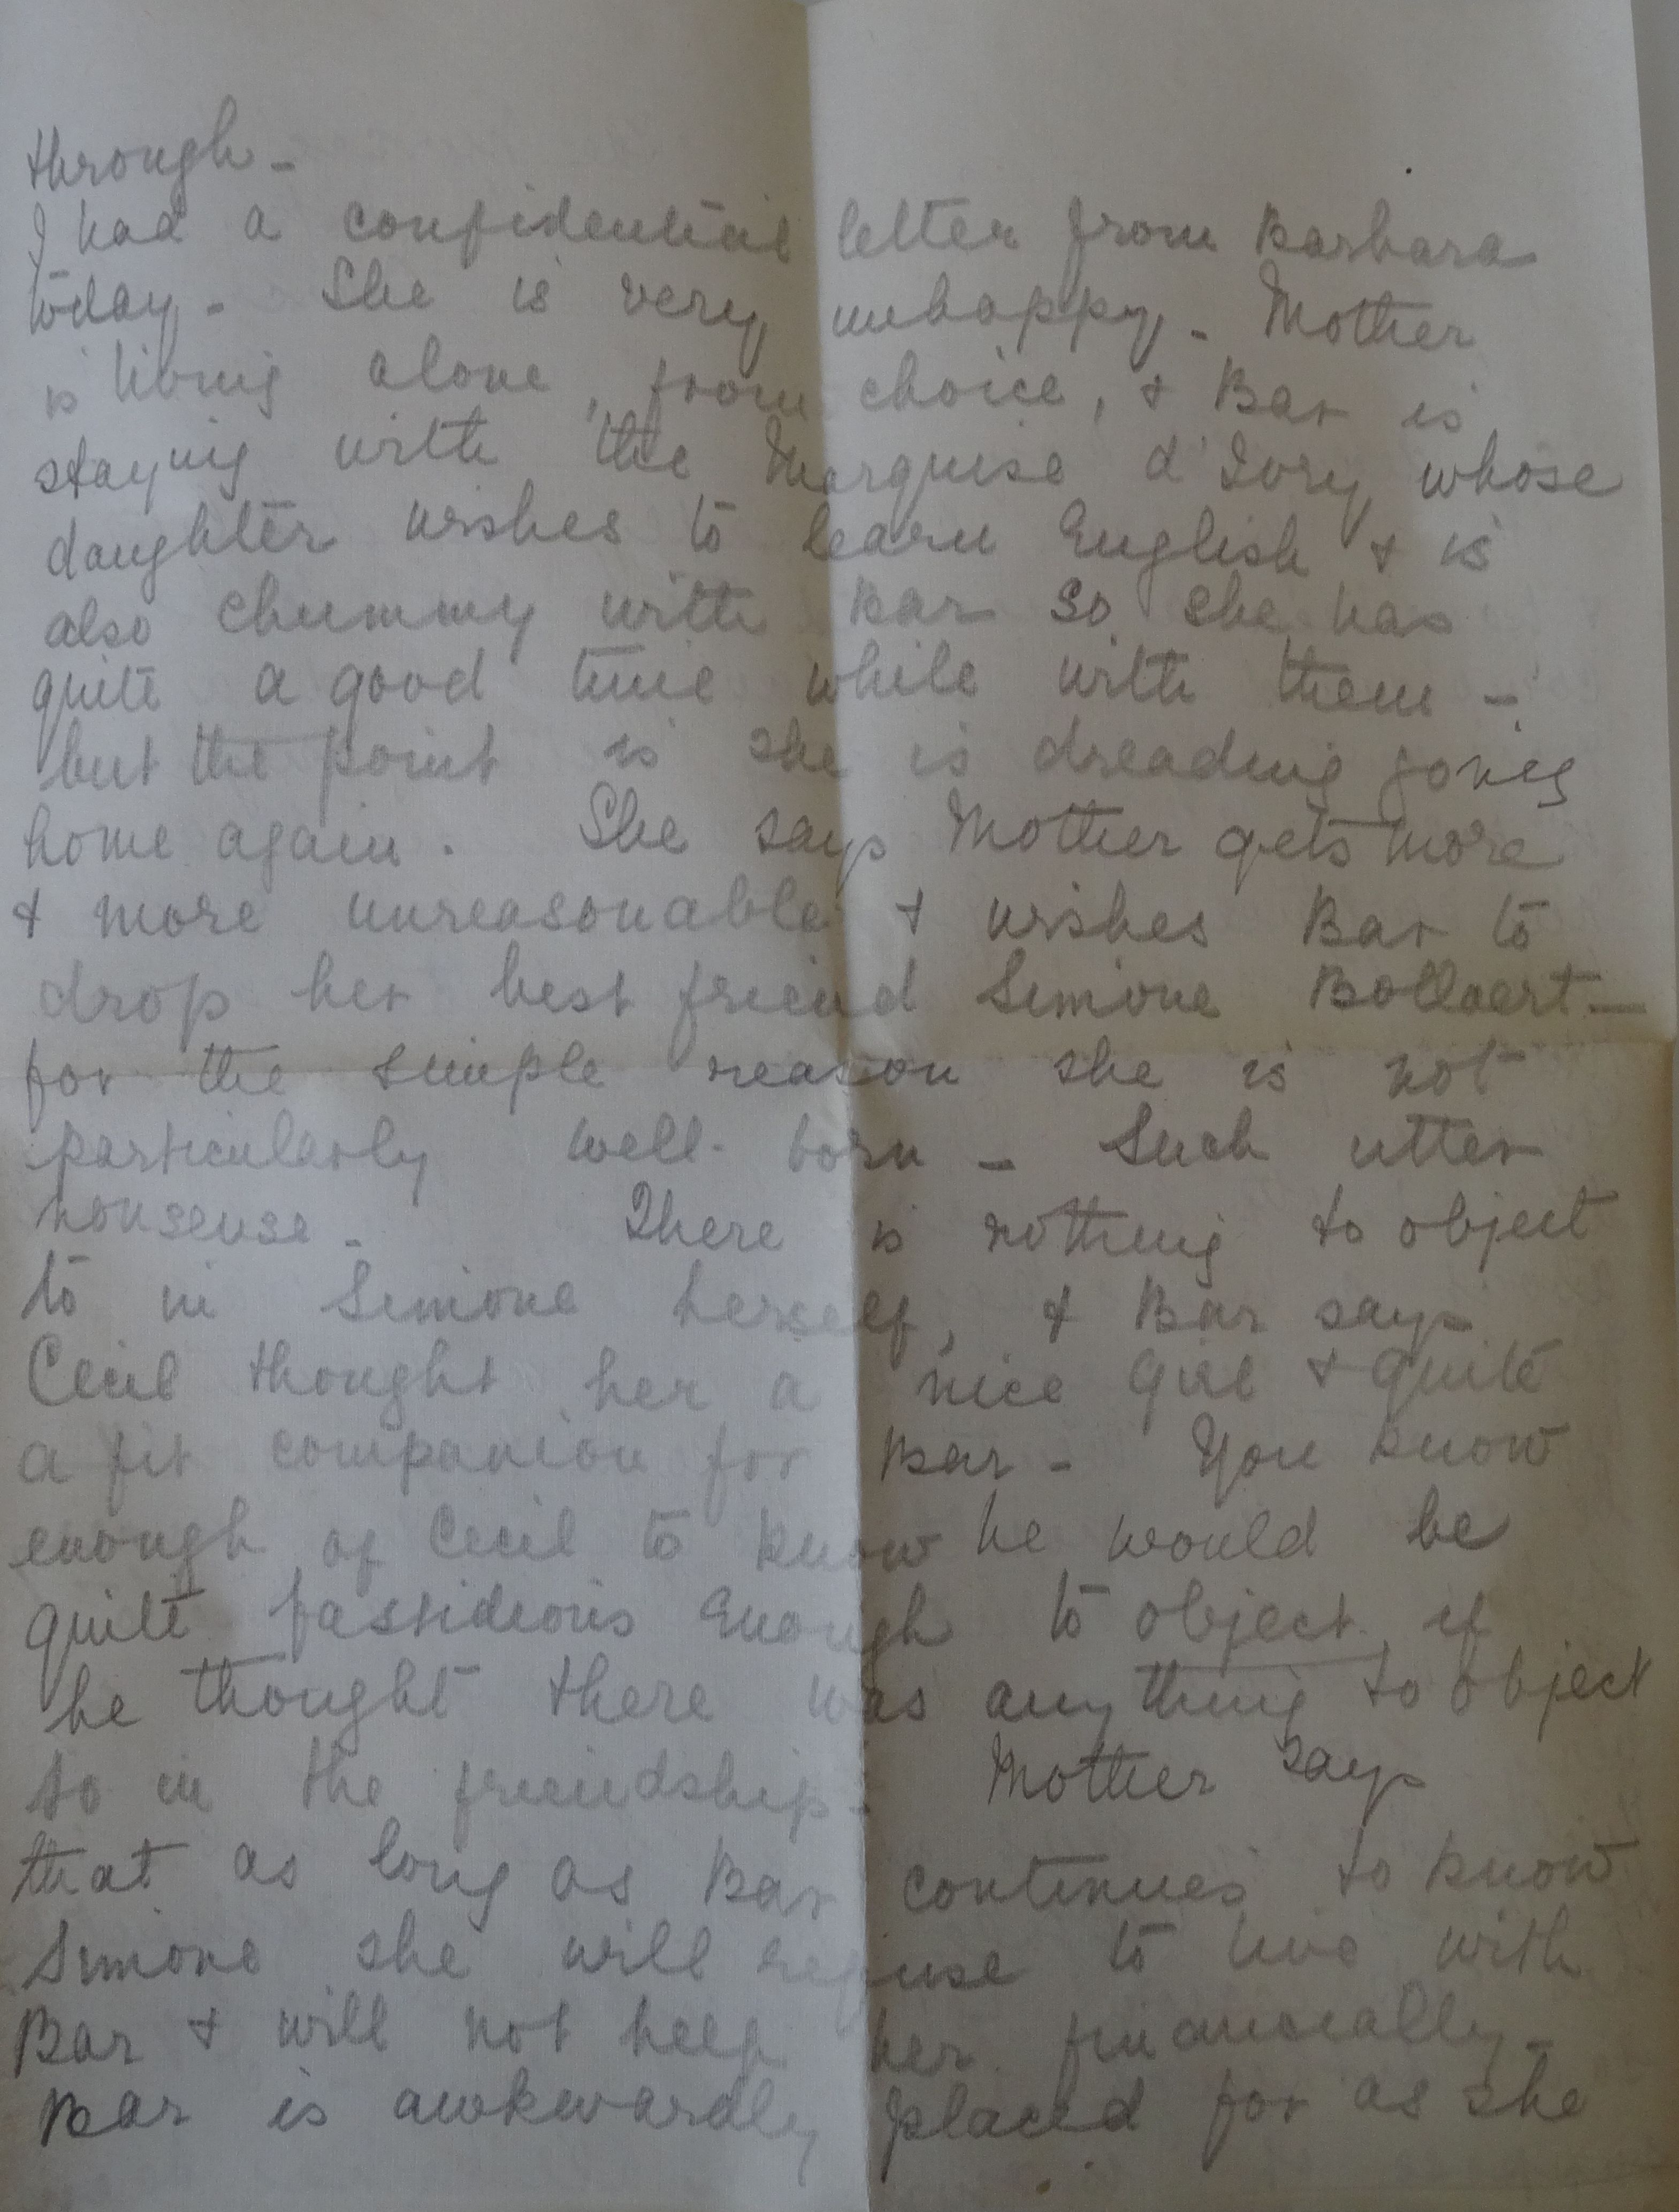 through -
I had a confidential letter from Barbara
today - She is very unhappy - Mother
is living alone, from choice, & Bar is
staying with the Marquise d'Ivry whose
daughter wishes to learn English & is
also chummy with Bar so she has
quite a good time while with them -
but the point is she is dreading going
home again. She says Mother gets more
& more unreasonable & wishes Bar to
drop her best friend Simone Bollaert -
for the simple reason she is not
particularly well-born - Such utter
nonsense - There is nothing to object
to in Simone herself, & Bar says
Cecil thought her a nice girl & quite
a fit companion for Bar - You know
enough of Cecil to know he would be
quite fastidious enough to object if
he thought there was anything to object
to in the friendship - Mother says
that as long as Bar continues to know
Simone she will refuse to live with
Bar & will not help her financially -
Bar is awkwardly placed for as she